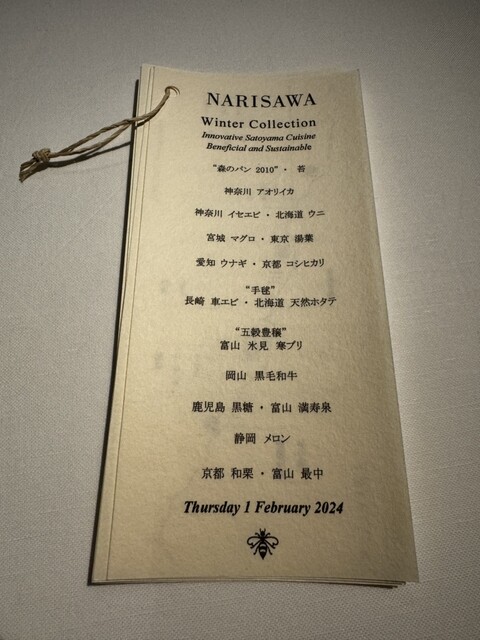 NARISAWA
Winter Collection
Innovative Satoyama Cuisine
Beneficial and Sustainable
“森のパン 2010”・ 苔
神奈川 アオリイカ
神奈川 イセエビ・北海道 ウニ
宮城 マグロ・東京 湯葉
愛知 ウナギ・京都 コシヒカリ
“手毬”
長崎 車エビ・北海道 天然ホタテ
“五穀豊穣”
富山 氷見 寒ブリ
岡山 黒毛和牛
鹿児島 黒糖・富山 満寿泉
静岡 メロン
京都 和栗・富山 最中
Thursday 1 February 2024